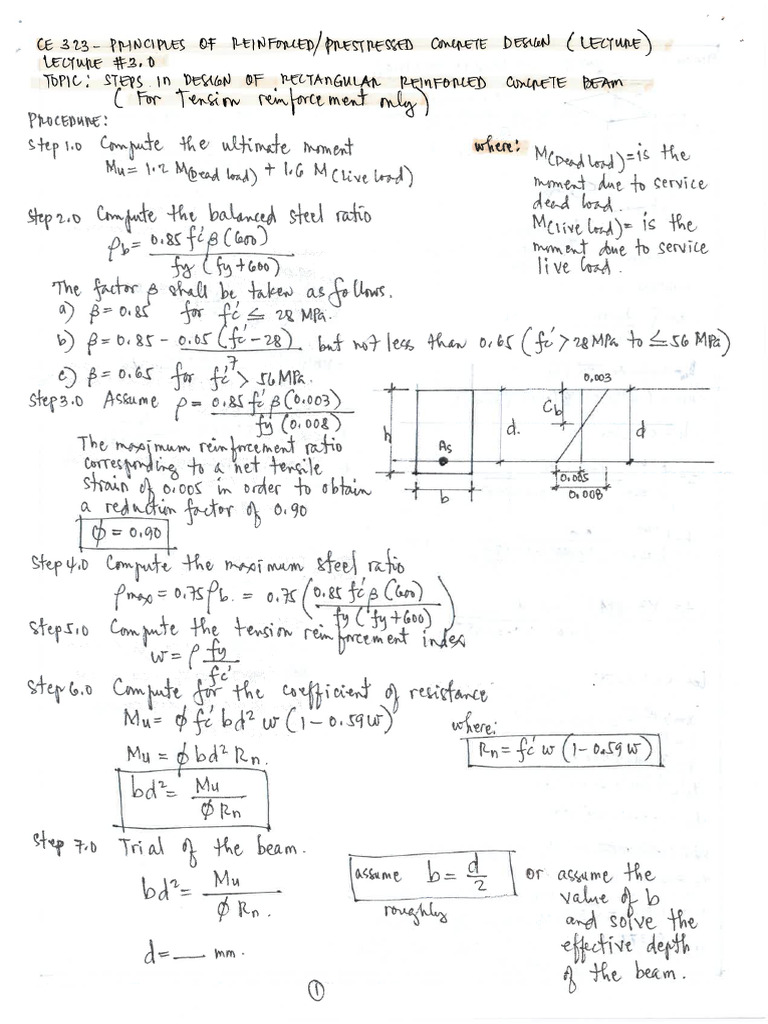 CE 323 - PRINCIPLES OF REINFORCED/PRESTRESSED CONCRETE DESIGN (LECTURE)
LECTURE #3.0
TOPIC: STEPS IN DESIGN OF RECTANGULAR REINFORCED CONCRETE BEAM
(For Tension reinforcement only)
PROCEDURE:
Step 1.0 Compute the ultimate moment
Mu = 1.2 M(Dead load) + 1.6 M(live load)
where: M(Dead load) = is the
moment due to service
dead load.
M(live load) = is the
moment due to service
live load.
Step 2.0 Compute the balanced steel ratio
ρb = 0.85 fc' β (600) / fy (fy + 600)
The factor β shall be taken as follows.
a) β = 0.85 for fc' ≤ 28 MPa.
b) β = 0.85 - 0.05 (fc' - 28) / 7 but not less than 0.65 (fc' > 28 MPa to ≤ 56 MPa)
c) β = 0.65 for fc' > 56 MPa.
Step 3.0 Assume ρ = 0.85 fc' β (0.003) / fy (0.008)
The maximum reinforcement ratio
corresponding to a net tensile
strain of 0.005 in order to obtain
a reduction factor of 0.90
φ = 0.90
h
As
b
d.
0.003
Cb
d
0.005
0.008
Step 4.0 Compute the maximum steel ratio
ρmax = 0.75 ρb. = 0.75 (0.85 fc' β (600) / fy (fy + 600))
Step 5.0 Compute the tension reinforcement index
w = ρ fy / fc'
Step 6.0 Compute for the coefficient of resistance
Mu = φ fc' bd² w (1 - 0.59w)
Mu = φ bd² Rn.
where:
Rn = fc' w (1 - 0.59 w)
bd² = Mu / φ Rn
Step 7.0 Trial of the beam.
bd² = Mu / φ Rn.
d = ___ mm.
assume b = d / 2
roughly
or assume the
value of b
and solve the
effective depth
of the beam.
1